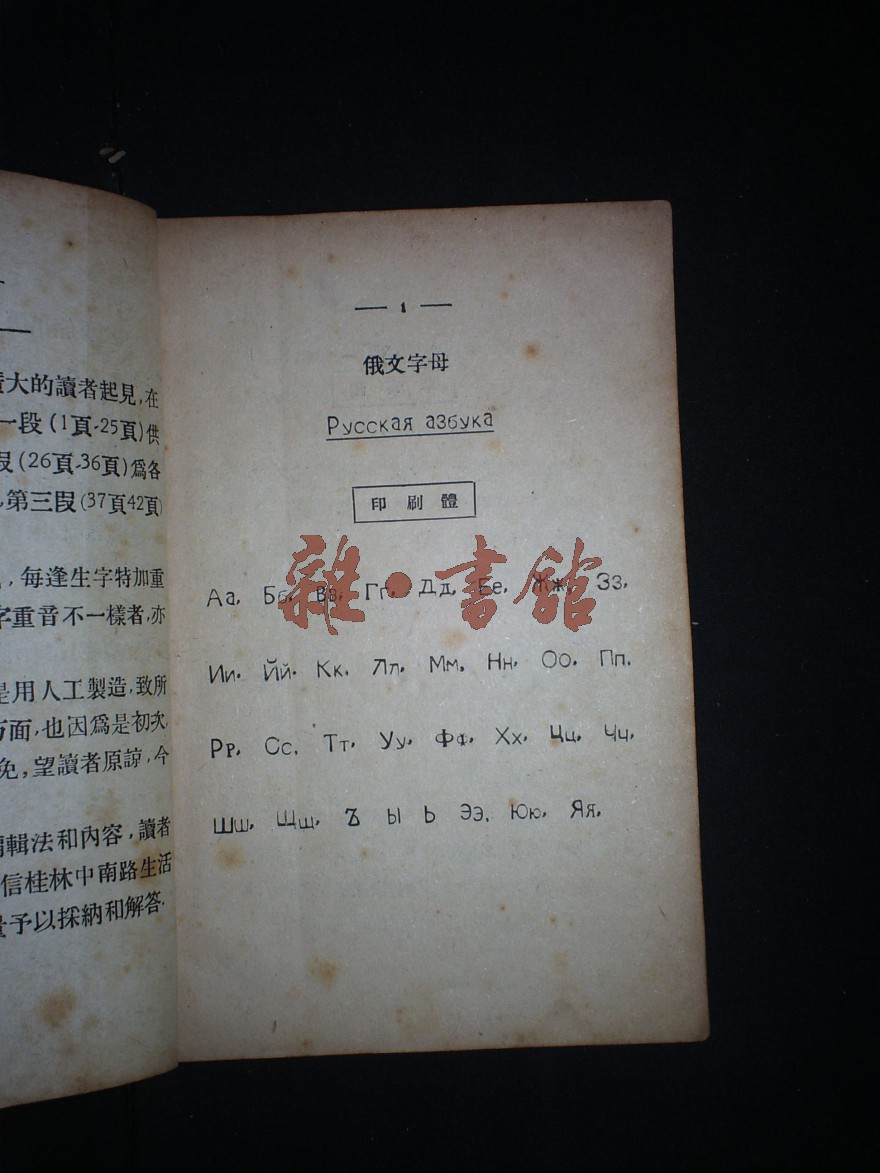 大的讀者起見,在
一段(1頁-25頁)供
(26頁-36頁)爲各
第三段(37頁42頁)
,每逢生字特加重
字重音不一樣者,亦
是用人工製造,致所
方面,也因爲是初次,
免,望讀者原諒,今
輯法和內容,讀者
信桂林中南路生活
量予以採納和解答.
— 1 —
俄文字母
Русская азбука
印刷體
雜·書館
Аа, Бб, Вв, Гг, Дд, Ее, Жж, Зз,
Ии, Йй, Кк, Лл, Мм, Нн, Оо, Пп,
Рр, Сс, Тт, Уу, Фф, Хх, Цц, Чч,
Шш, Щщ, Ъ Ы Ь Ээ, Юю, Яя,